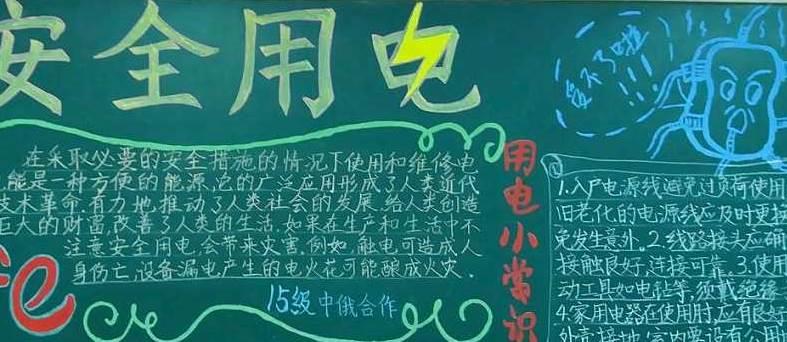 安全用电
在采取必要的安全措施的情况下使用和维修电
能是一种方便的能源,它的广泛应用形成了人类近代
技术革命有力地推动了人类社会的发展,给人类创造
巨大的财富,改善了人类的生活.如果在生产和生活中不
注意安全用电,会带来灾害.例如,触电可造成人
身伤亡,设备漏电产生的电火花可能酿成火灾.
15级中俄合作
受不了啦!!!
用电小常识
1.入户电源线避免过负荷使用
旧老化的电源线应及时更换
免发生意外.2.线路接头应确
接触良好,连接可靠.3.使用
动工具如电钻等,须戴绝缘
4.家用电器在使用时,应有良好
外壳接地,室内要设有公用